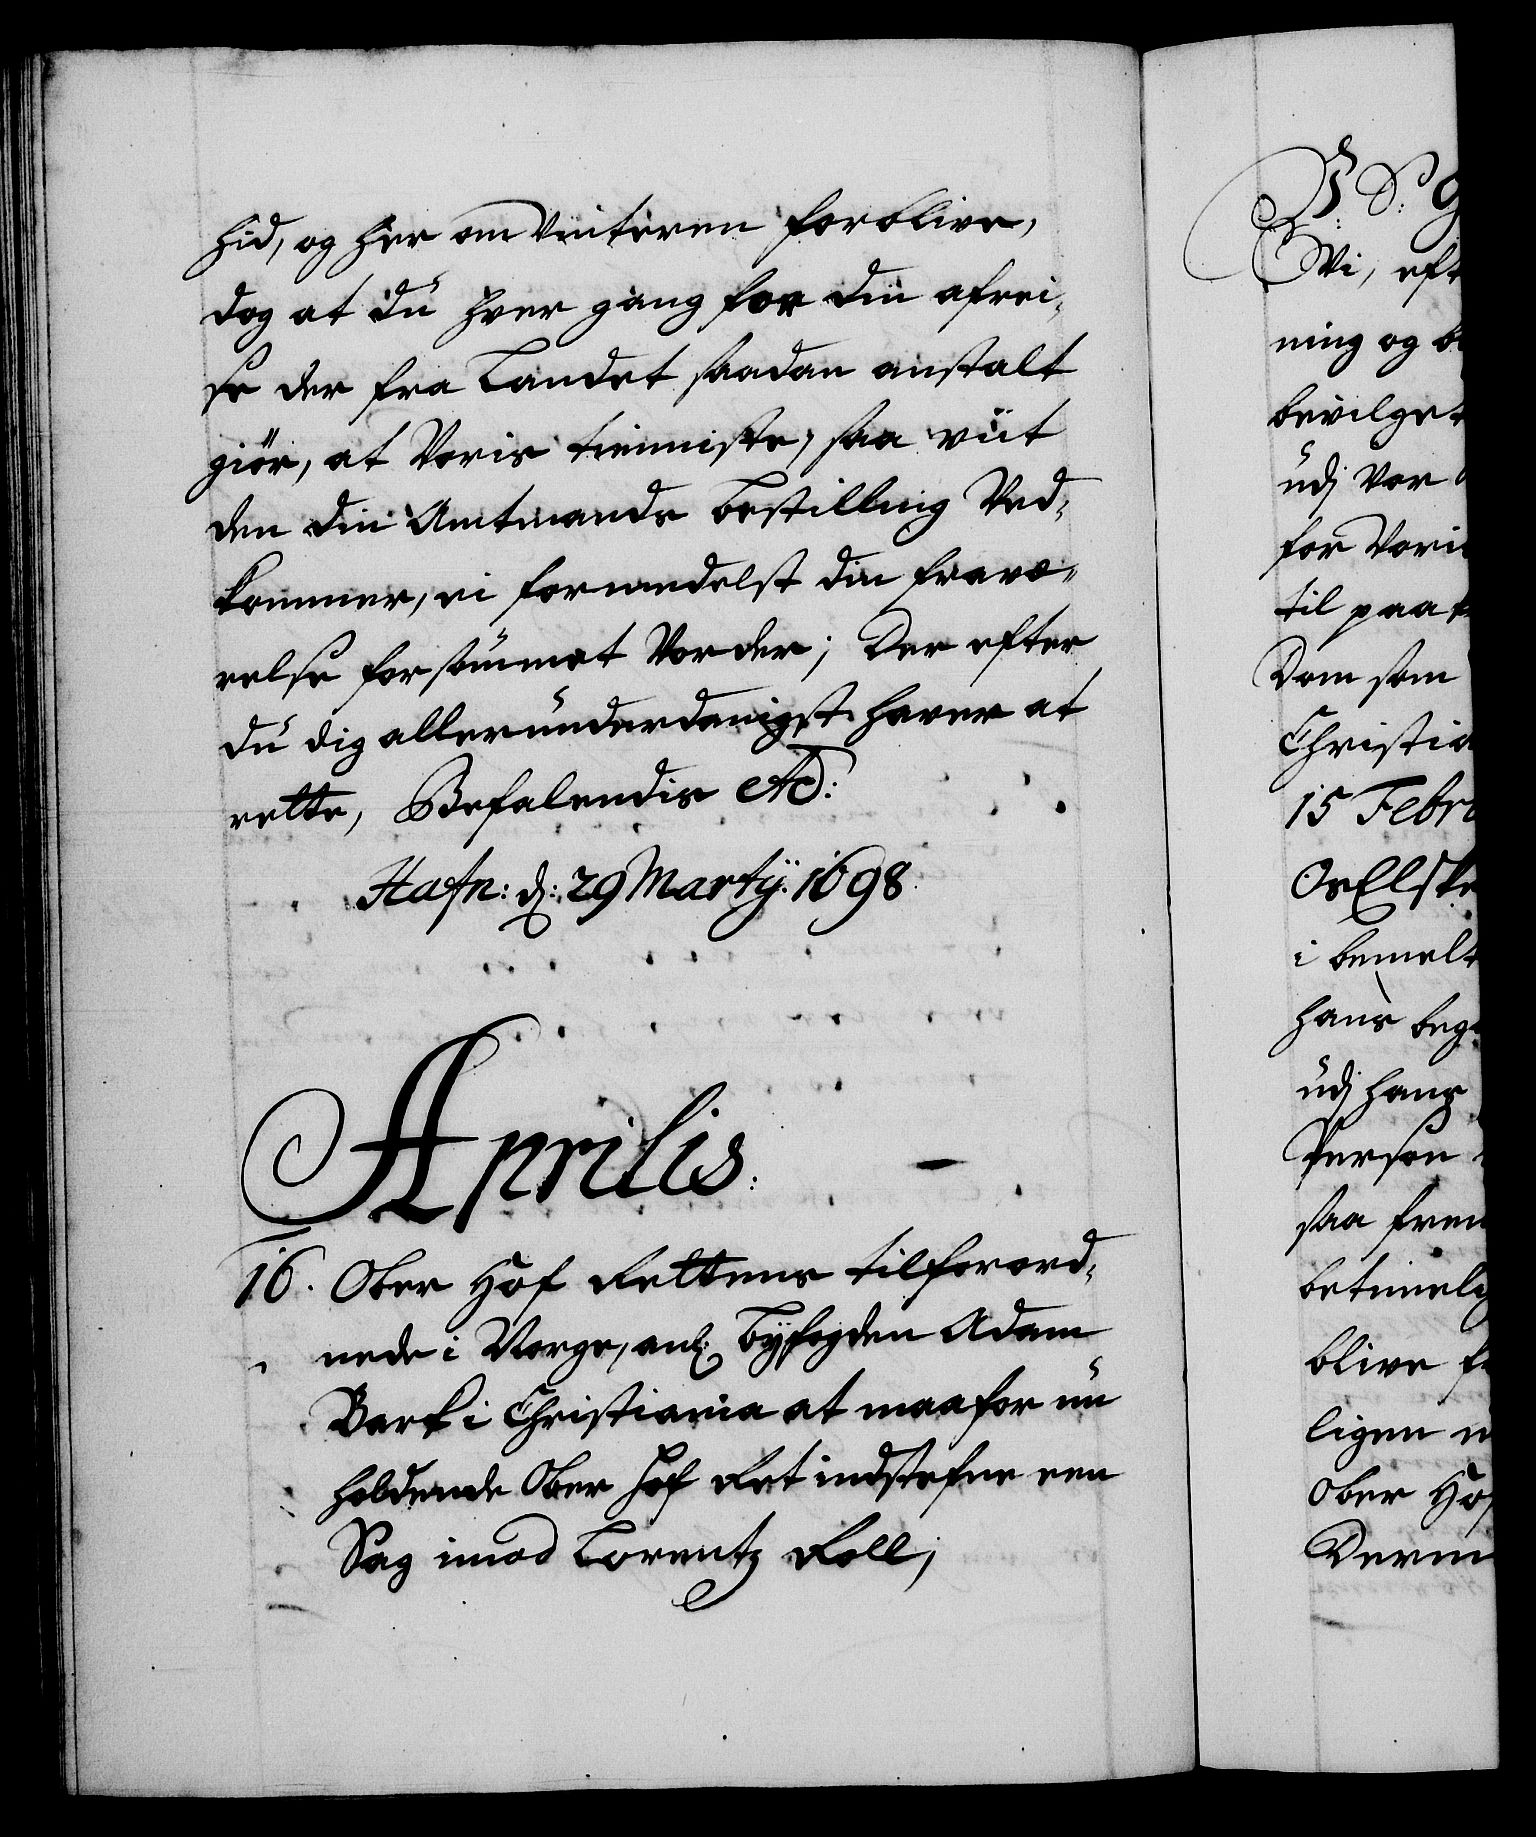 hid, og her om Vinteren forblive,
dog at du hver gang for din afrei,
se der fra Landet saadan anstalt
giör, at Voris tienniste, saa viit
den din Amtmands bestilling Ved,
kommer, ei formedelst din fravæ,
relse forsömmet Vorder; Der efter
du dig allerunderdanigst haver at
rette, Befalendis etc:
Hafn: d: 29 Martij: 1698.
Aprilis:
16. Ober Hof Rettens tilforord,
nede i Norge, anl: Byfogden Adam
Bark i Christiania at maa for nu
holdende Ober Hof Ret indstefne een
Sag imod Lorentz Roll;
J. S. G
Wi, eft
ning og b
bevilget
udj Vor
for Vori
til paak
Dom som
Christia
15 Febru
Os Elske
i bemelt
hans beg
udj hans
Person
saa frem
betimelig
blive f
ligen
Ober Hof
Derm